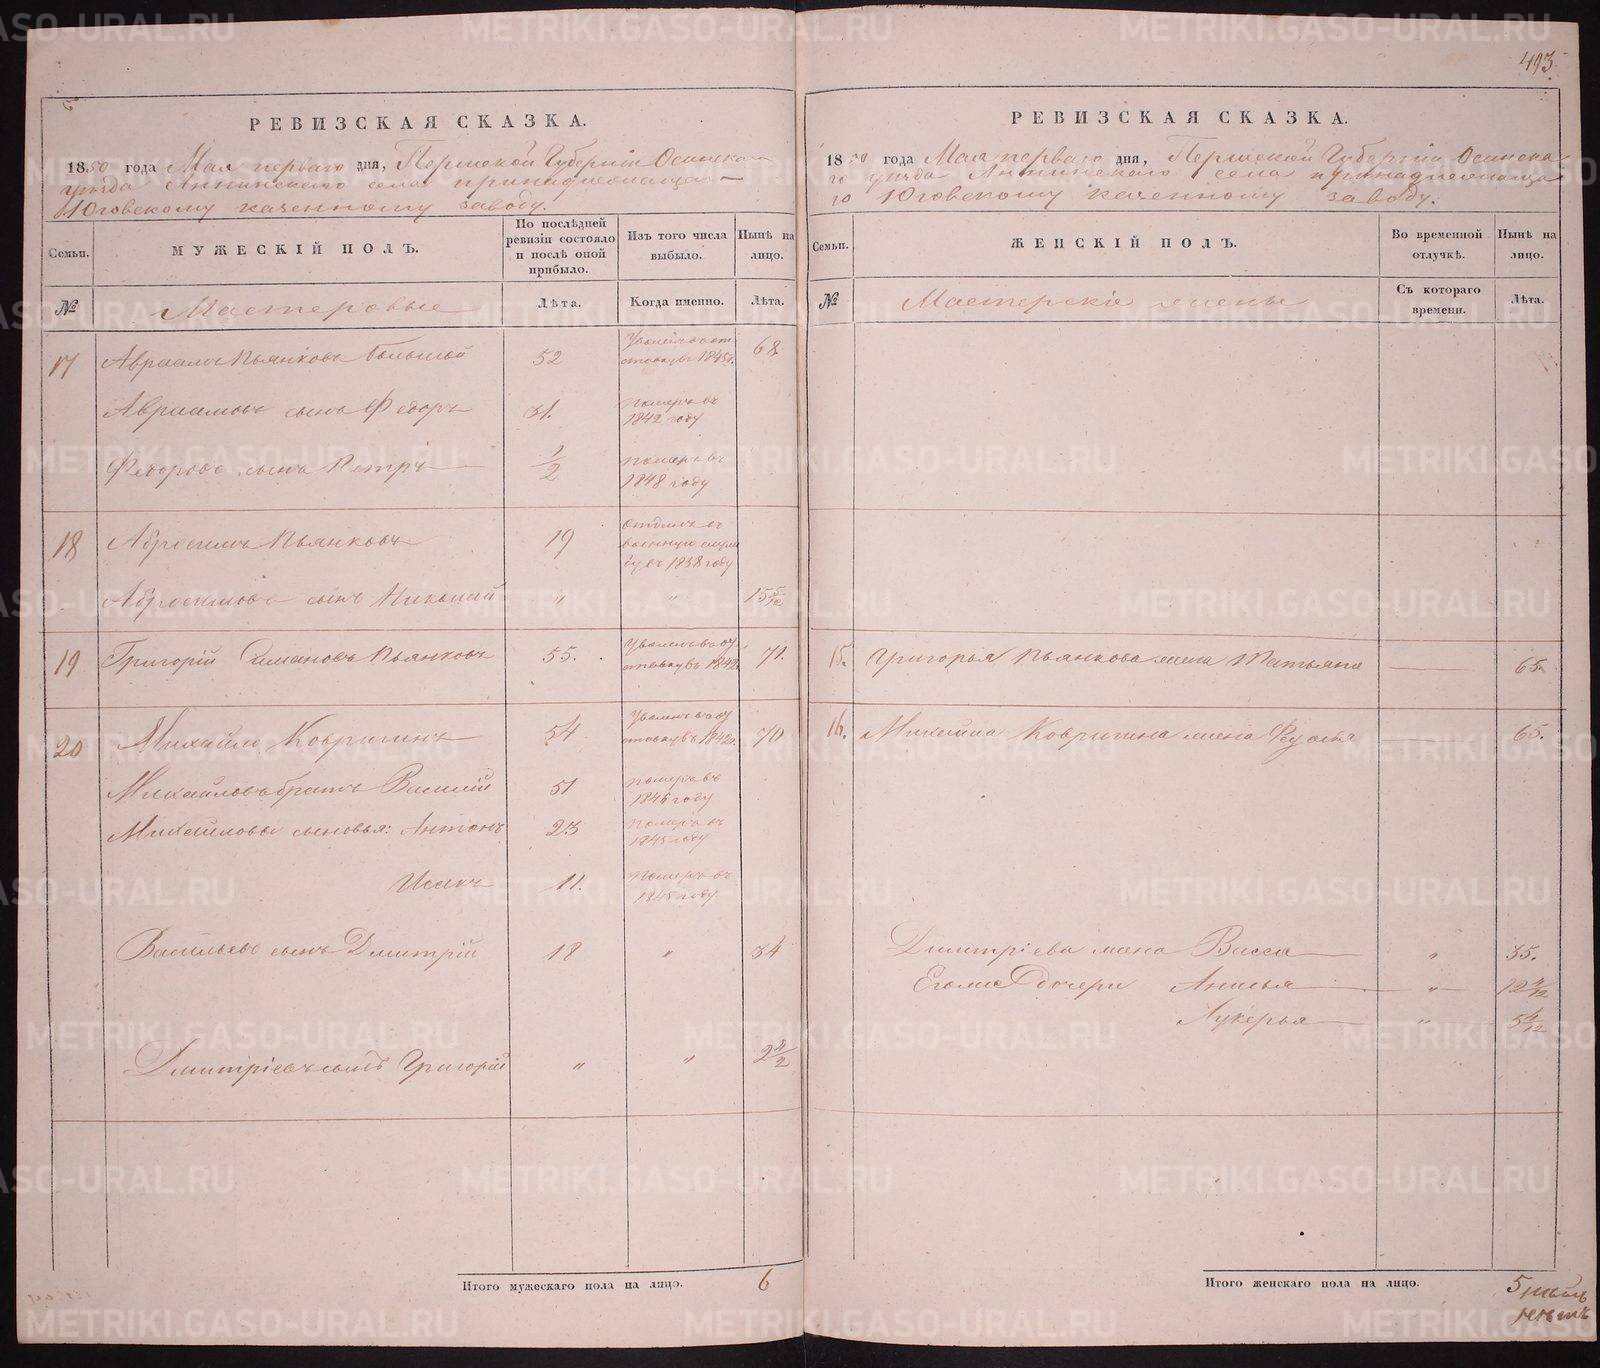 493
РЕВИЗСКАЯ СКАЗКА.
1850 года Мая перваго дня, Пермской Губерніи Осинска-
уѣзда Аннинскаго села принадлежаща-
Юговскому казенному заводу.
Семьи.
МУЖЕСКІЙ ПОЛЪ.
По послѣдней ревизіи состояло и послѣ оной прибыло.
Изъ того числа выбыло.
Нынѣ на лицо.
№
Мастеровые
Лѣта.
Когда именно.
Лѣта.
17 Авраамъ Пьянковъ Большой 52 Уволенъ въ от
ставку въ 1845 68
Авраамовъ сынъ Федоръ 31. померъ въ
1842 году
Федоровъ сынъ Петръ 1/2 померъ въ
1848 году
18 Абросимъ Пьянковъ 19 отданъ въ
военную служ
бу въ 1838 году
Абросимовъ сынъ Николай " " 15 5/12
19 Григорій Симановъ Пьянковъ 55. Уволенъ въ от
ставку въ 1842 71.
20 Михайло Ковригинъ 54 Уволенъ въ от
ставку въ 1842 70
Михайловъ братъ Василій 51 померъ въ
1846 году
Михайловы сыновья: Антонъ 23 померъ въ
1845 году
Исакъ 11. померъ въ
1845 году
Васильевъ сынъ Дмитрій 18 " 34
Дмитріевъ сынъ Григорій " "
Итого мужескаго пола на лицо. 6
РЕВИЗСКАЯ СКАЗКА.
1850 года Мая перваго дня, Пермской Губерніи Осинска
го уѣзда Аннинскаго села принадлежаща
го Юговскому казенному заводу.
Семьи.
ЖЕНСКІЙ ПОЛЪ.
Во временной отлучкѣ.
Нынѣ на лицо.
№
Мастерскіе жены
Съ котораго времени.
Лѣта.
15. Григорья Пьянкова жена Татьяна 65
16. Михайла Ковригина жена Федосья 65.
Дмитріева жена Васса " 35.
Его дочери Анисья "
Лукерья "
Итого женскаго пола на лицо. 5
METRIKI.GASO-URAL.RU